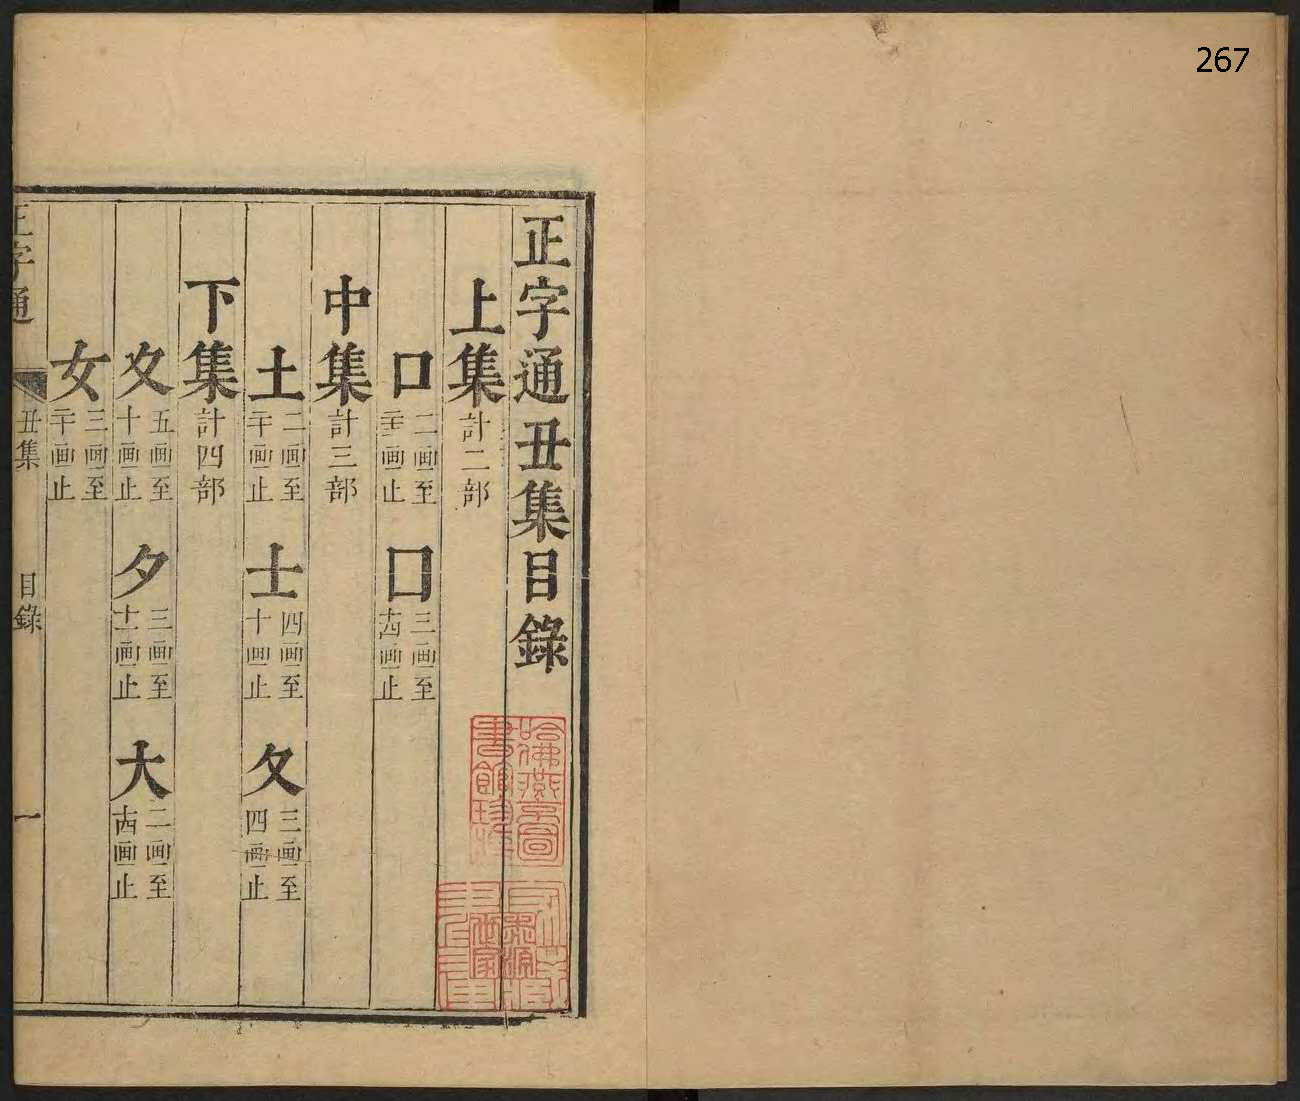 267
正字通丑集目錄
上集 計二部
口 二画至二十一画止 囗 三画至十四画止
中集 計三部
土 二画至二十画止 士 四画至十画止 夂 三画至四画止
下集 計四部
夊 五画至十画止 夕 三画至十一画止 大 二画至十四画止
女 三画至二十画止
正字通 丑集 目錄 一
哈佛燕京圖書館珍